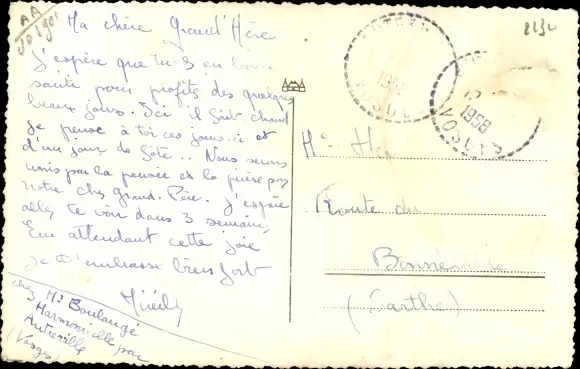 Ma chère Grand'Mère
J'espère que tu es en bonne
santé pour profiter des quelques
beaux jours. Ici il fait chaud
Je pense à toi ces jours-ci et
d'un jour de fête.. Nous serons
unis par la pensée et la prière pour
notre cher Grand. Père. J'espère
aller te voir dans 3 semaines
En attendant cette joie
je t'embrasse bien fort
chez Mr Boulangé
Harmonville par
Autreville
(Vosges)
AA
VOSGES
1958
VOSGES
Route du
Bonnétable
(Sarthe)